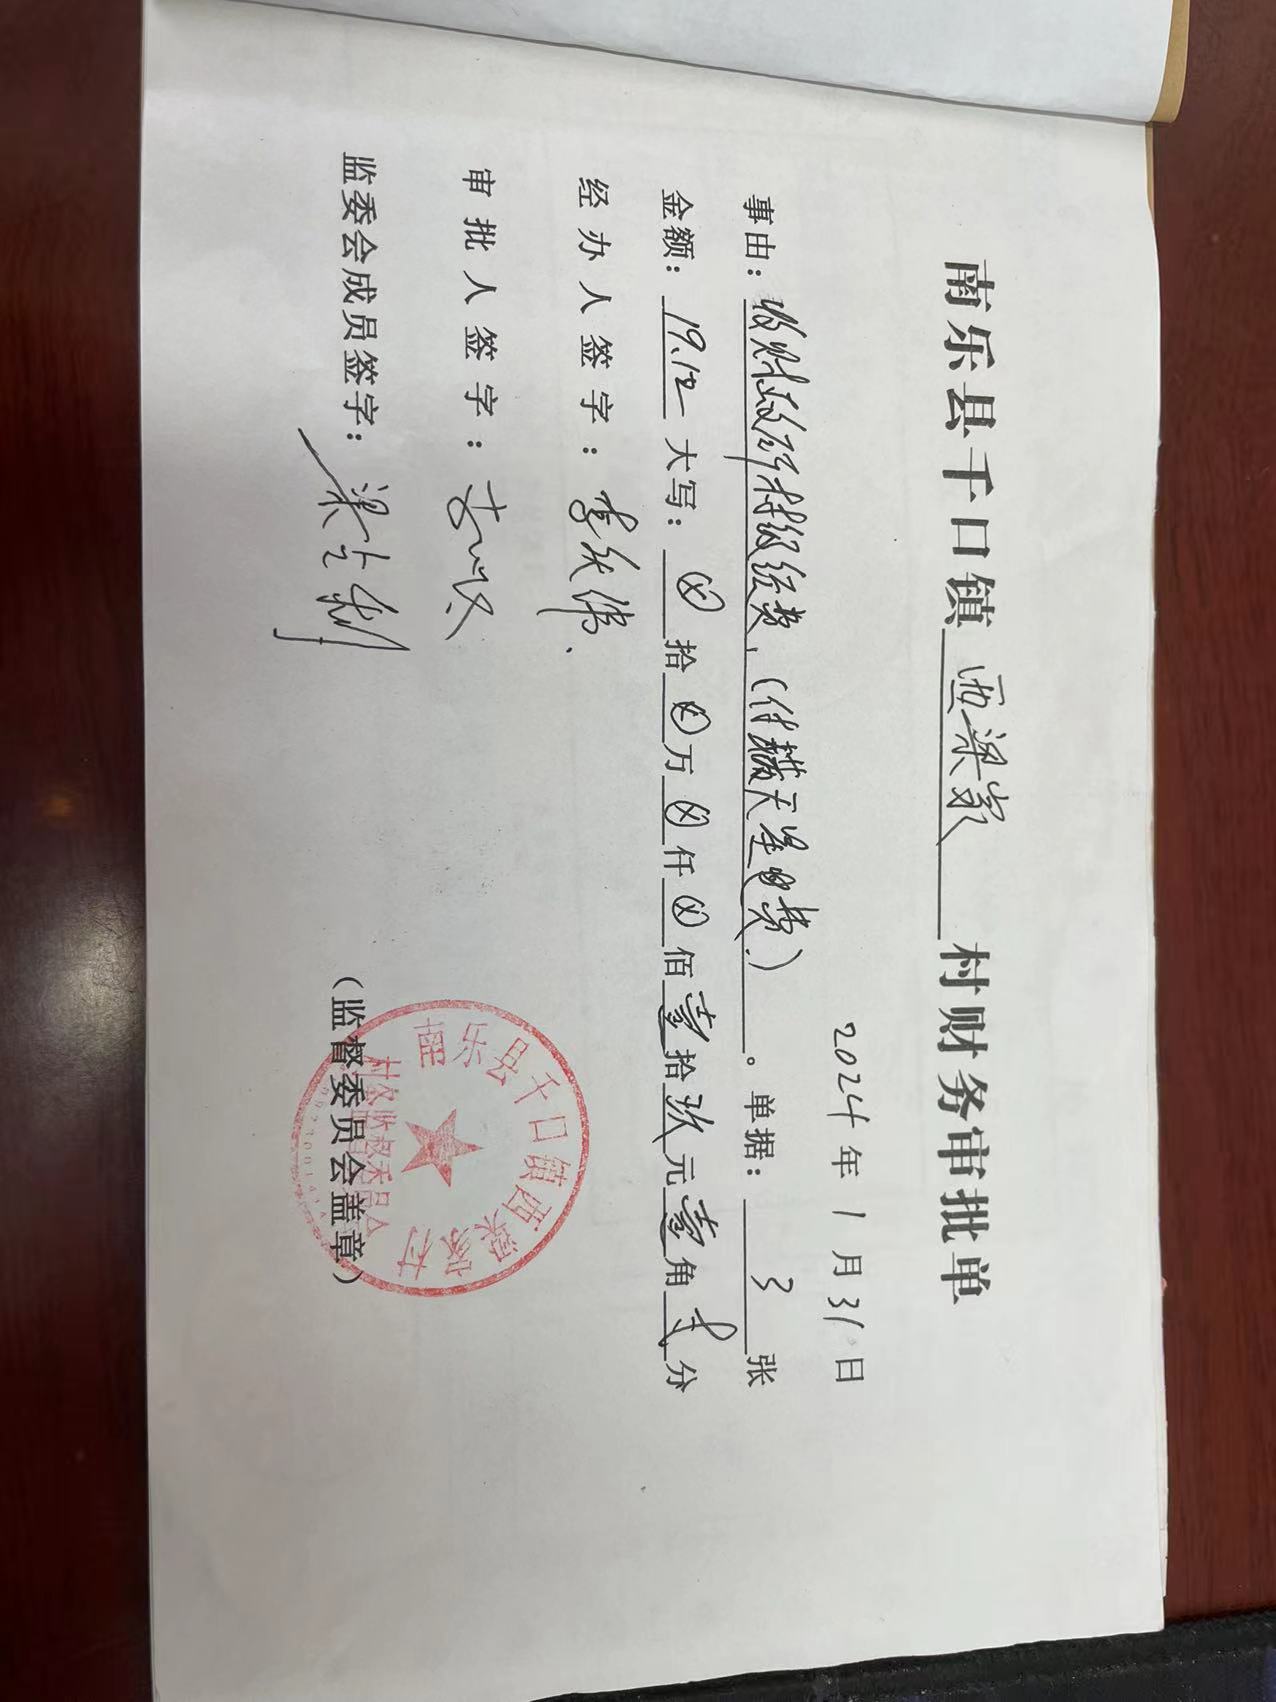 南乐县千口镇西梁家村财务审批单
2024年1月31日
事由：收财政所村级经费，(付耕天星电费)。单据：3张
金额：19.12 大写：⊗拾⊗万⊗仟⊗佰壹拾玖元壹角贰分
经办人签字：
审批人签字：
监委会成员签字：
南乐县千口镇西梁家村
村务监督委员会
(监督委员会盖章)